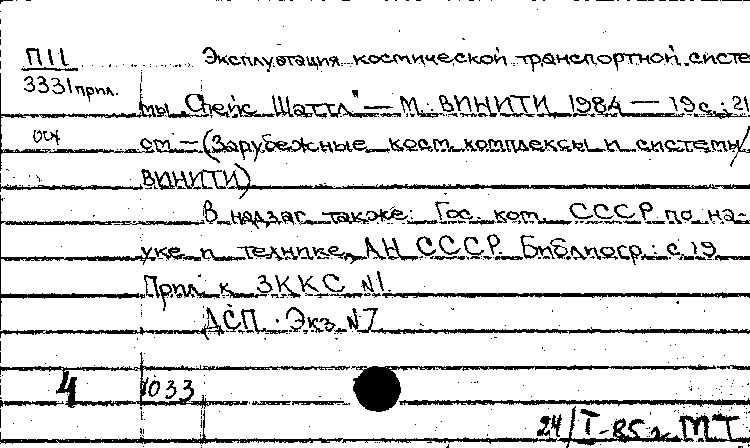 П11 Эксплуатация космической транспортной систе
3331 прил.
мы "Спейс Шаттл" — М.: ВИНИТИ, 1984 — 19с.; 21
см — (Зарубежные косм. комплексы и системы/
ВИНИТИ)
В надзаг. также: Гос. ком. СССР по на-
уке и технике, АН СССР. Библиогр.: с. 19
Прил. к ЗККС N1.
ДСП. Экз. N7
4 1033
24/I-85 г. МТ